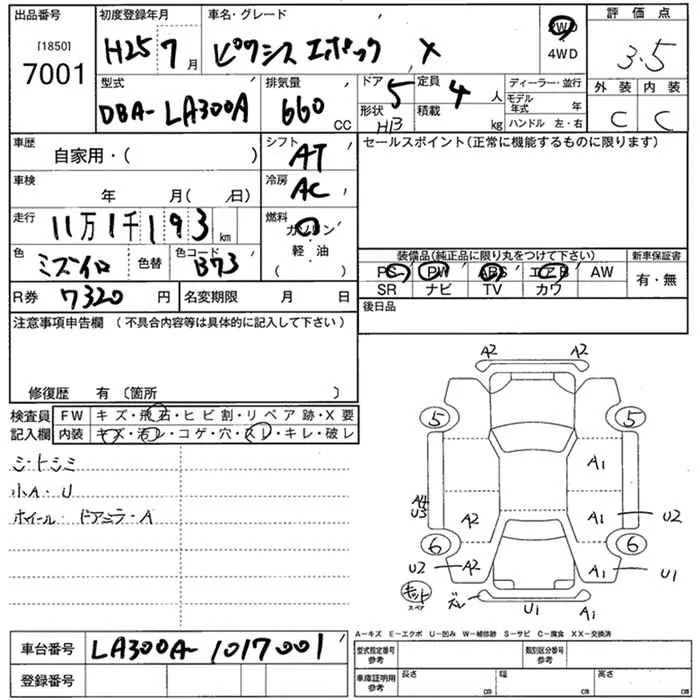 出品番号 [1850] 7001
初度登録年月 H25 7月
車名・グレード ピクシス エポック X
2WD 4WD
評価点 3.5
型式 DBA-LA300A
排気量 660 CC
ドア 5
形状 HB
定員 4人
積載 kg
ディーラー・並行
モデル年式 年
ハンドル 左・右
外装 C
内装 C
車歴 自家用・( )
シフト AT
セールスポイント(正常に機能するものに限ります)
車検 年 月( 日)
冷房 AC
走行 11万1千193km
燃料 ガソリン 軽・油 ( )
色 ミズイロ 色替 色コード B73
装備品(純正品に限り丸をつけて下さい)
PS PW ABS エアB AW
SR ナビ TV カワ
新車保証書 有・無
R券 7320円
名変期限 月 日
後日品
注意事項申告欄 (不具合内容等は具体的に記入して下さい)
修復歴 有〔箇所 〕
検査員記入欄
FW キズ・飛石・ヒビ割・リペア跡・X要
内装 キズ・汚レ・コゲ・穴・スレ・キレ・破レ
シートシミ
小A・U
ホイール・ドアミラーA
A2 A2
5 5
A1
A4 U3
A2 A1 U2
6 6
U2 A2 A1 U1
キット スペア
ズレ U1 A1
A-キズ E-エクボ U-凹み W-補修跡 S-サビ C-腐食 XX-交換済
車台番号 LA300A-1017001
登録番号
型式指定番号 参考
類別区分番号 参考
車庫証明用 参考 長さ cm 幅 cm 高さ cm